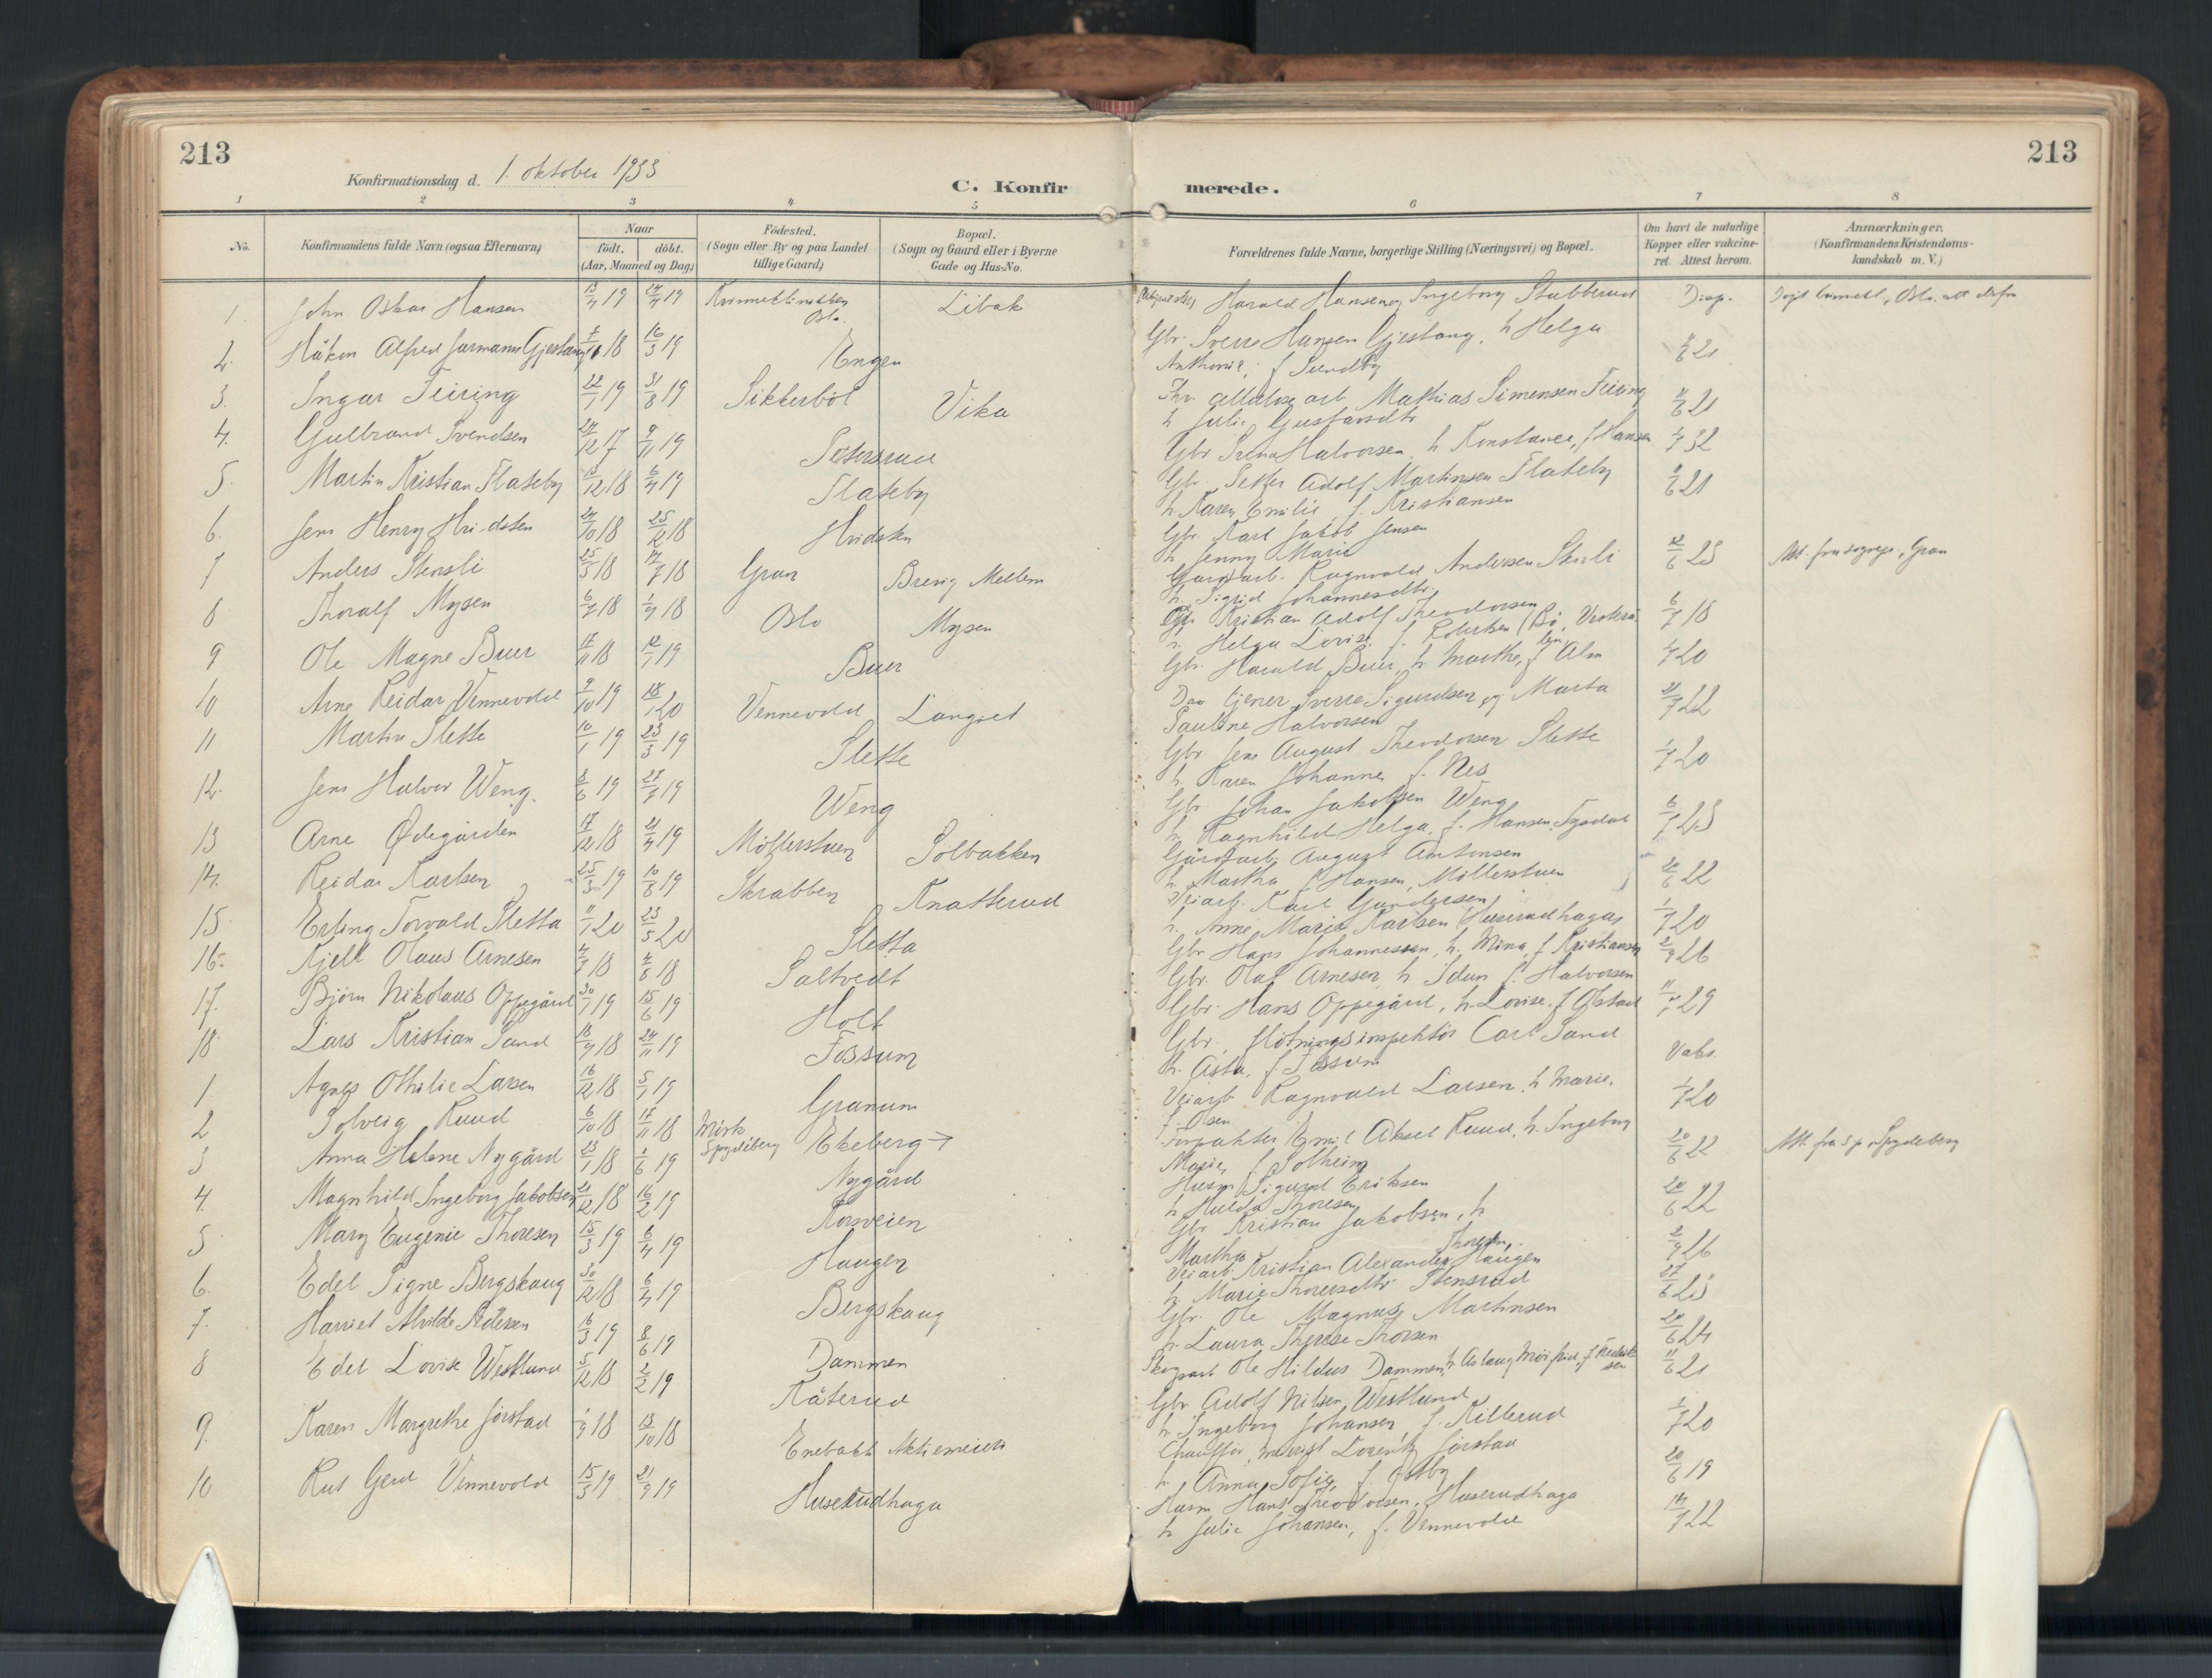 213
213
Konfirmationsdag d. 1. oktober 1933
C. Konfir merede.
1 2 3 4 5 6 7 8
No.
Konfirmandens fulde Navn (ogsaa Efternavn)
Naar
födt. döbt.
(Aar, Maaned og Dag)
Födested.
(Sogn eller By og paa Landet
tillige Gaard)
Bopæl.
(Sogn og Gaard eller i Byerne
Gade og Hus-No.
Forældrenes fulde Navne, borgerlige Stilling (Næringsvei) og Bopæl.
Om havt de naturlige
Kopper eller vaccine-
ret. Attest herom.
Anmærkninger.
(Konfirmandens Kristendoms-
kundskab m. V.)
1 John Oskar Hansen 19 19 Oslo. Libak Harald Hansen og Ingeborg Stubberud Disp.
2. Håkon Alfred Gjestang 18 16/3 19 Engen Gbr. Sverre Hansen Gjestang, h Helga
Anthonie, f Sundby 21
3. Ingar Teiring 22/1 19 31/8 19 Sikkerböl Vika arb Mathias Simensen Teiring
h Julie Gustavsdtr 21
4. Gulbrand Svendsen 12 17 9/11 19 Petersrud Gbr Halvorsen h Konstance, f Hansen 32
5. Martin Kristian Flateby 12 18 6/4 19 Flateby Gbr. Petter Adolf Martinsen Flateby
h Karen Emilie f. Kristiansen 21
6. Jens Henry Hvidsten 24/10 18 25/12 18 Hvidsten Gbr. Karl Jakob Jensen
h Jenny Marie
7 Anders Stensli 25/5 18 7 18 Gran Brevig Mellem Ragnvald Andersen Stensli
h. Sigrid Johannesdtr 23 Att. fra sognepr. i Gran
8 Thoralf Mysen 18 18 Oslo Mysen Kristian Adolf Theodorsen
Helga Lovise f. 6/7 18
9 Ole Magne Buer 17/11 18 12/1 19 Buer Gbr. Harald Buer, h Marthe, f Alm 20
10 Arne Reidar Vennevold 9/10 19 18/1 20 Vennevold Langset tjener Sverre Sigurdsen og Marta
Pauline Halvorsen 22
11 Martin Slette 10/1 19 23/3 19 Slette Gbr Jens August Theodorsen Slette
h. Karen Johanne f. Nes 1/7 20
12. Jens Halvor Weng. 8/6 19 27/7 19 Weng Gbr. Johan Jakobsen Weng
h Ragnhild Helga, f. Hansen 6/7 23
13 Arne Ødegården 17/12 18 21/4 19 Möllerstuen Solbakken Gårdsarb. August Antonsen
h. Martha f Hansen, Möllerstuen 20/6 22
14. Reidar Karlsen 25/3 19 10/8 19 Skrabben Knatterud Veiarb. Karl Gundersen
h. Anne Marie Karlsen Huserudhaga 1/7 20
15. Erling Torvald Sletta 11/1 20 23/5 20 Sletta Gbr Hans Johannessen, h. Mina, f Kristiansen 26
16. Kjell Olaus Arnesen 18 18 Saltvedt Gbr. Olaf Arnesen, h Idun f. Halvorsen
17. Björn Nikolaus Oppegård 30/1 19 15/6 19 Holt Gbr. Hans Oppegård, h. Lovise. f Østad 29
18 Lars Kristian Sand 18/9 18 24/11 19 Fossum Gbr, flötningsinspektör Carl Sand
h. Asta, f Fossum
1 Agnes Othilie Larsen 16/12 18 5/1 19 Granum Veiarb Ragnvald Larsen, h Marie,
f. Olsen 1/7 20
2 Solveig Ruud 6/10 18 17/11 18 Ekeberg Forpakter Emil Aksel Ruud, h. Ingeborg
Marie f Solheim 20/6 22 Att. fra Spydeberg
Spydeberg
3 Anna Helene Nygård 23/1 18 1/6 19 Nygård Sigurd Eriksen
h Hulda Thoresen 20/6 22
4. Magnhild Ingeborg Jakobsen 21/12 18 16/2 19 Korsveien Gbr Kristian Jakobsen, h
Martha Thoresen 26
5 Mary Eugenie Thoresen 15/3 19 6/4 19 Haugen Veiarb Kristian Alexander Haugen
h. Marie Thoresdtr Stensrud 27/6 23
6. Edel Signe Bergskaug 30/12 18 6/4 19 Bergskaug Gbr. Ole Magnus Martinsen
h. Laura Therese Thorsen 20/6 24
7. Harriet Alvilde Pedersen 16/3 19 8/6 19 Dammen Skogsarb Ole Hildus Dammen, h Aslaug 11/6 21
8 Edel Lovise Westlund 5/12 18 2/2 19 Kåterud Gbr Adolf Nilsen Westlund
h Ingeborg Johansen, f. Killerud 1/7 20
9. Karen Margrethe Jörstad 1/9 18 13/10 18 Enebakk Aktiemeieri Chauffør, Lorentz Jörstad
h. Anna Sofie, f. Østby 20/6 19
10 Rut Gerd Vennevold 15/3 19 21/9 19 Huserudhaga Husm Hans Theodorsen, Huserudhaga
h Julie Johansen, f. Vennevold 14/7 22